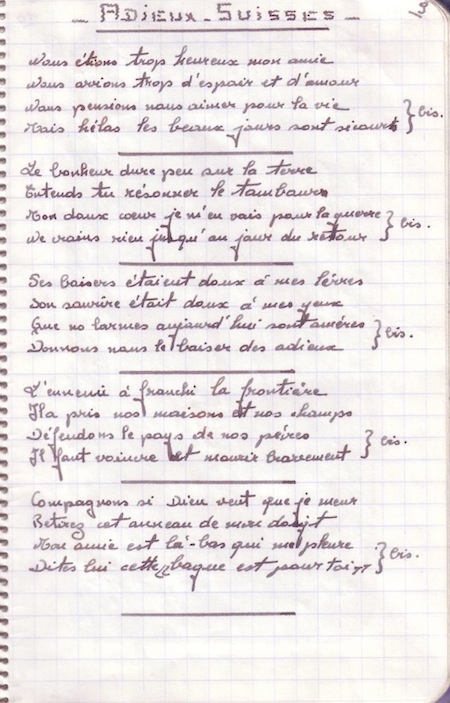 _ ADIEUX _ SUISSES _
13
Nous étions trop heureux mon amie
Nous avions trop d'espoir et d'amour
Nous pensions nous aimer pour la vie
Mais hélas les beaux jours sont si courts } bis.
Le bonheur dure peu sur la terre
Entends tu résonner le tambour
Mon doux coeur je m'en vais pour la guerre
Ne crains rien jusqu'au jour du retour } bis.
Ses baisers étaient doux à mes lèvres
Son sourire était doux à mes yeux
Que no larmes aujourd'hui sont amères
Donnons nous le baiser des adieux } bis.
L'ennemi à franchi la frontière
Il a pris nos maisons et nos champs
Défendons le pays de nos pères
Il faut vaincre et mourir bravement } bis.
Compagnons si Dieu veut que je meur
Retirez cet anneau de mon doigt
Mon amie est là-bas qui me pleure
Dites lui cette bague est pour toi } bis.